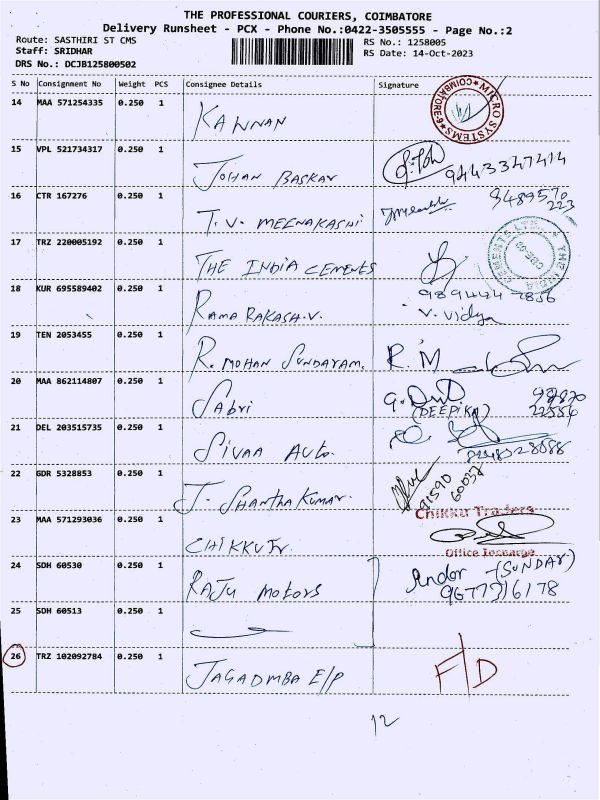 THE PROFESSIONAL COURIERS, COIMBATORE
Delivery Runsheet - PCX - Phone No.:0422-3505555 - Page No.:2
Route: SASTHIRI ST CMS RS No.: 1258005
Staff: SRIDHAR RS Date: 14-Oct-2023
DRS No.: DCJB125800502
S No Consignment No Weight PCS Consignee Details Signature
14 MAA 571254335 0.250 1 KANNAN MICRO SYSTEMS ★ COIMBATORE-6 ★
15 VPL 521734317 0.250 1 JOHAN BASKAR 9443347414
16 CTR 167276 0.250 1 T.V. MEENAKASHI 9489570
223
17 TRZ 220005192 0.250 1 THE INDIA CEMENTS THE INDIA CEMENTS LTD.
18 KUR 695589402 0.250 1 RAMA RAKASH.V. V. Vidya
19 TEN 2053455 0.250 1 R. MOHAN SUNDARAM. R. M
20 MAA 862114807 0.250 1 SABRI (DEEPIKA) 98870
22556
21 DEL 203515735 0.250 1 SIVAA AUTO.
22 GDR 5328853 0.250 1 J. SHANTHA KUMAR. 91590
60032
23 MAA 571293036 0.250 1 CHIKKU Tr. Chikku Traders
Office Incharge
24 SDH 60530 0.250 1 RAJU MOTORS Andor (SUNDAR)
9677316178
25 SDH 60513 0.250 1
26 TRZ 102092784 0.250 1 JAGADMBA E/P F/D
12